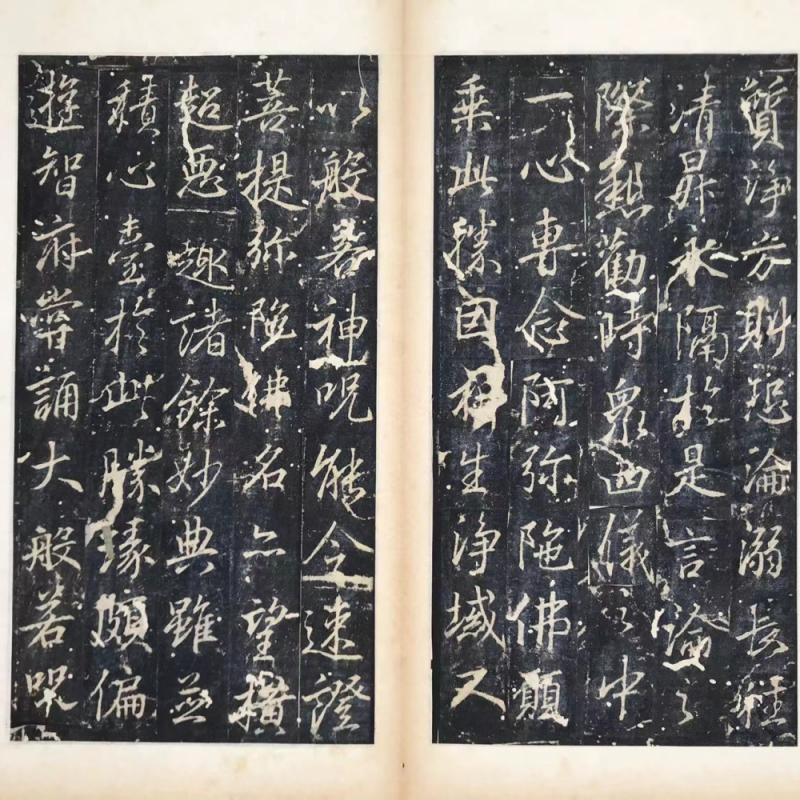 質淨方則恐淪溺長
清昇永隔於是言論之
際懇勸時衆四儀之中
一心專念阿弥陁佛願
乘此勝因祈生淨域又
以般若神呪能令速證
菩提弥陁佛名亦望橫
超惡趣諸餘妙典雖並
積心臺於此勝緣頗偏
遊智府嘗誦大般若呪